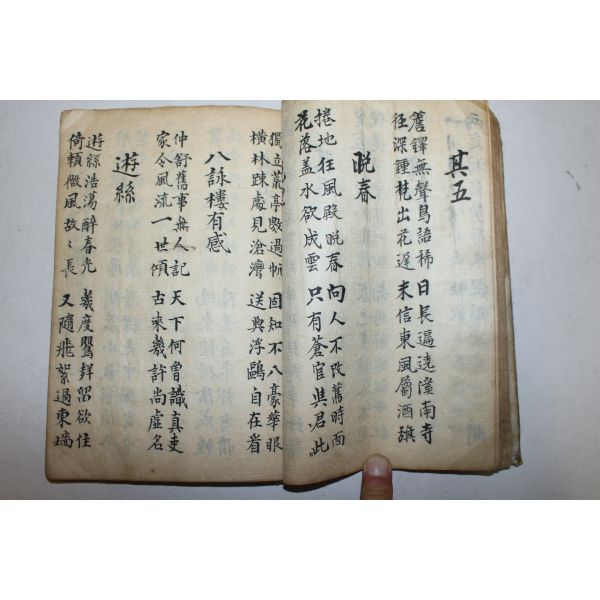 其五
簷鐸無聲鳥語稀 日長逼遶溪南寺
径深鍾梵出花遅 未信東風屬酒旗
晩春
捲地狂風殿晩春 向人不改舊時面
花落盖水欲成雲 只有蒼官與君此
獨立荒亭數過帆 固知不入豪華眼
横林踈處見滄灣 送與浮鷗自在看
八詠樓有感
仲舒舊事無人記 天下何曾識真吏
家令風流一世傾 古來幾許尚虛名
遊絲
遊絲浩蕩醉春光 幾度鸎聲留欲住
倚頼微風故〻長 又隨飛絮過東墻